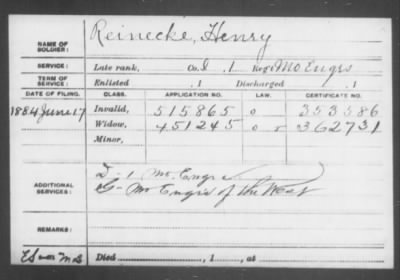 Reinecke, Henry
NAME OF SOLDIER:
SERVICE: Late rank, Co. I, 1 Reg't Mo Engrs
TERM OF SERVICE: Enlisted , 1 Discharged , 1
DATE OF FILING. CLASS. APPLICATION NO. LAW. CERTIFICATE NO.
1884 June 17 Invalid, 515865 o 353586
Widow, 451245 o 362731
Minor,
ADDITIONAL SERVICES: D-1 Mo. Engr
G- Mo Engrs of the West
REMARKS:
Died , 1 , at